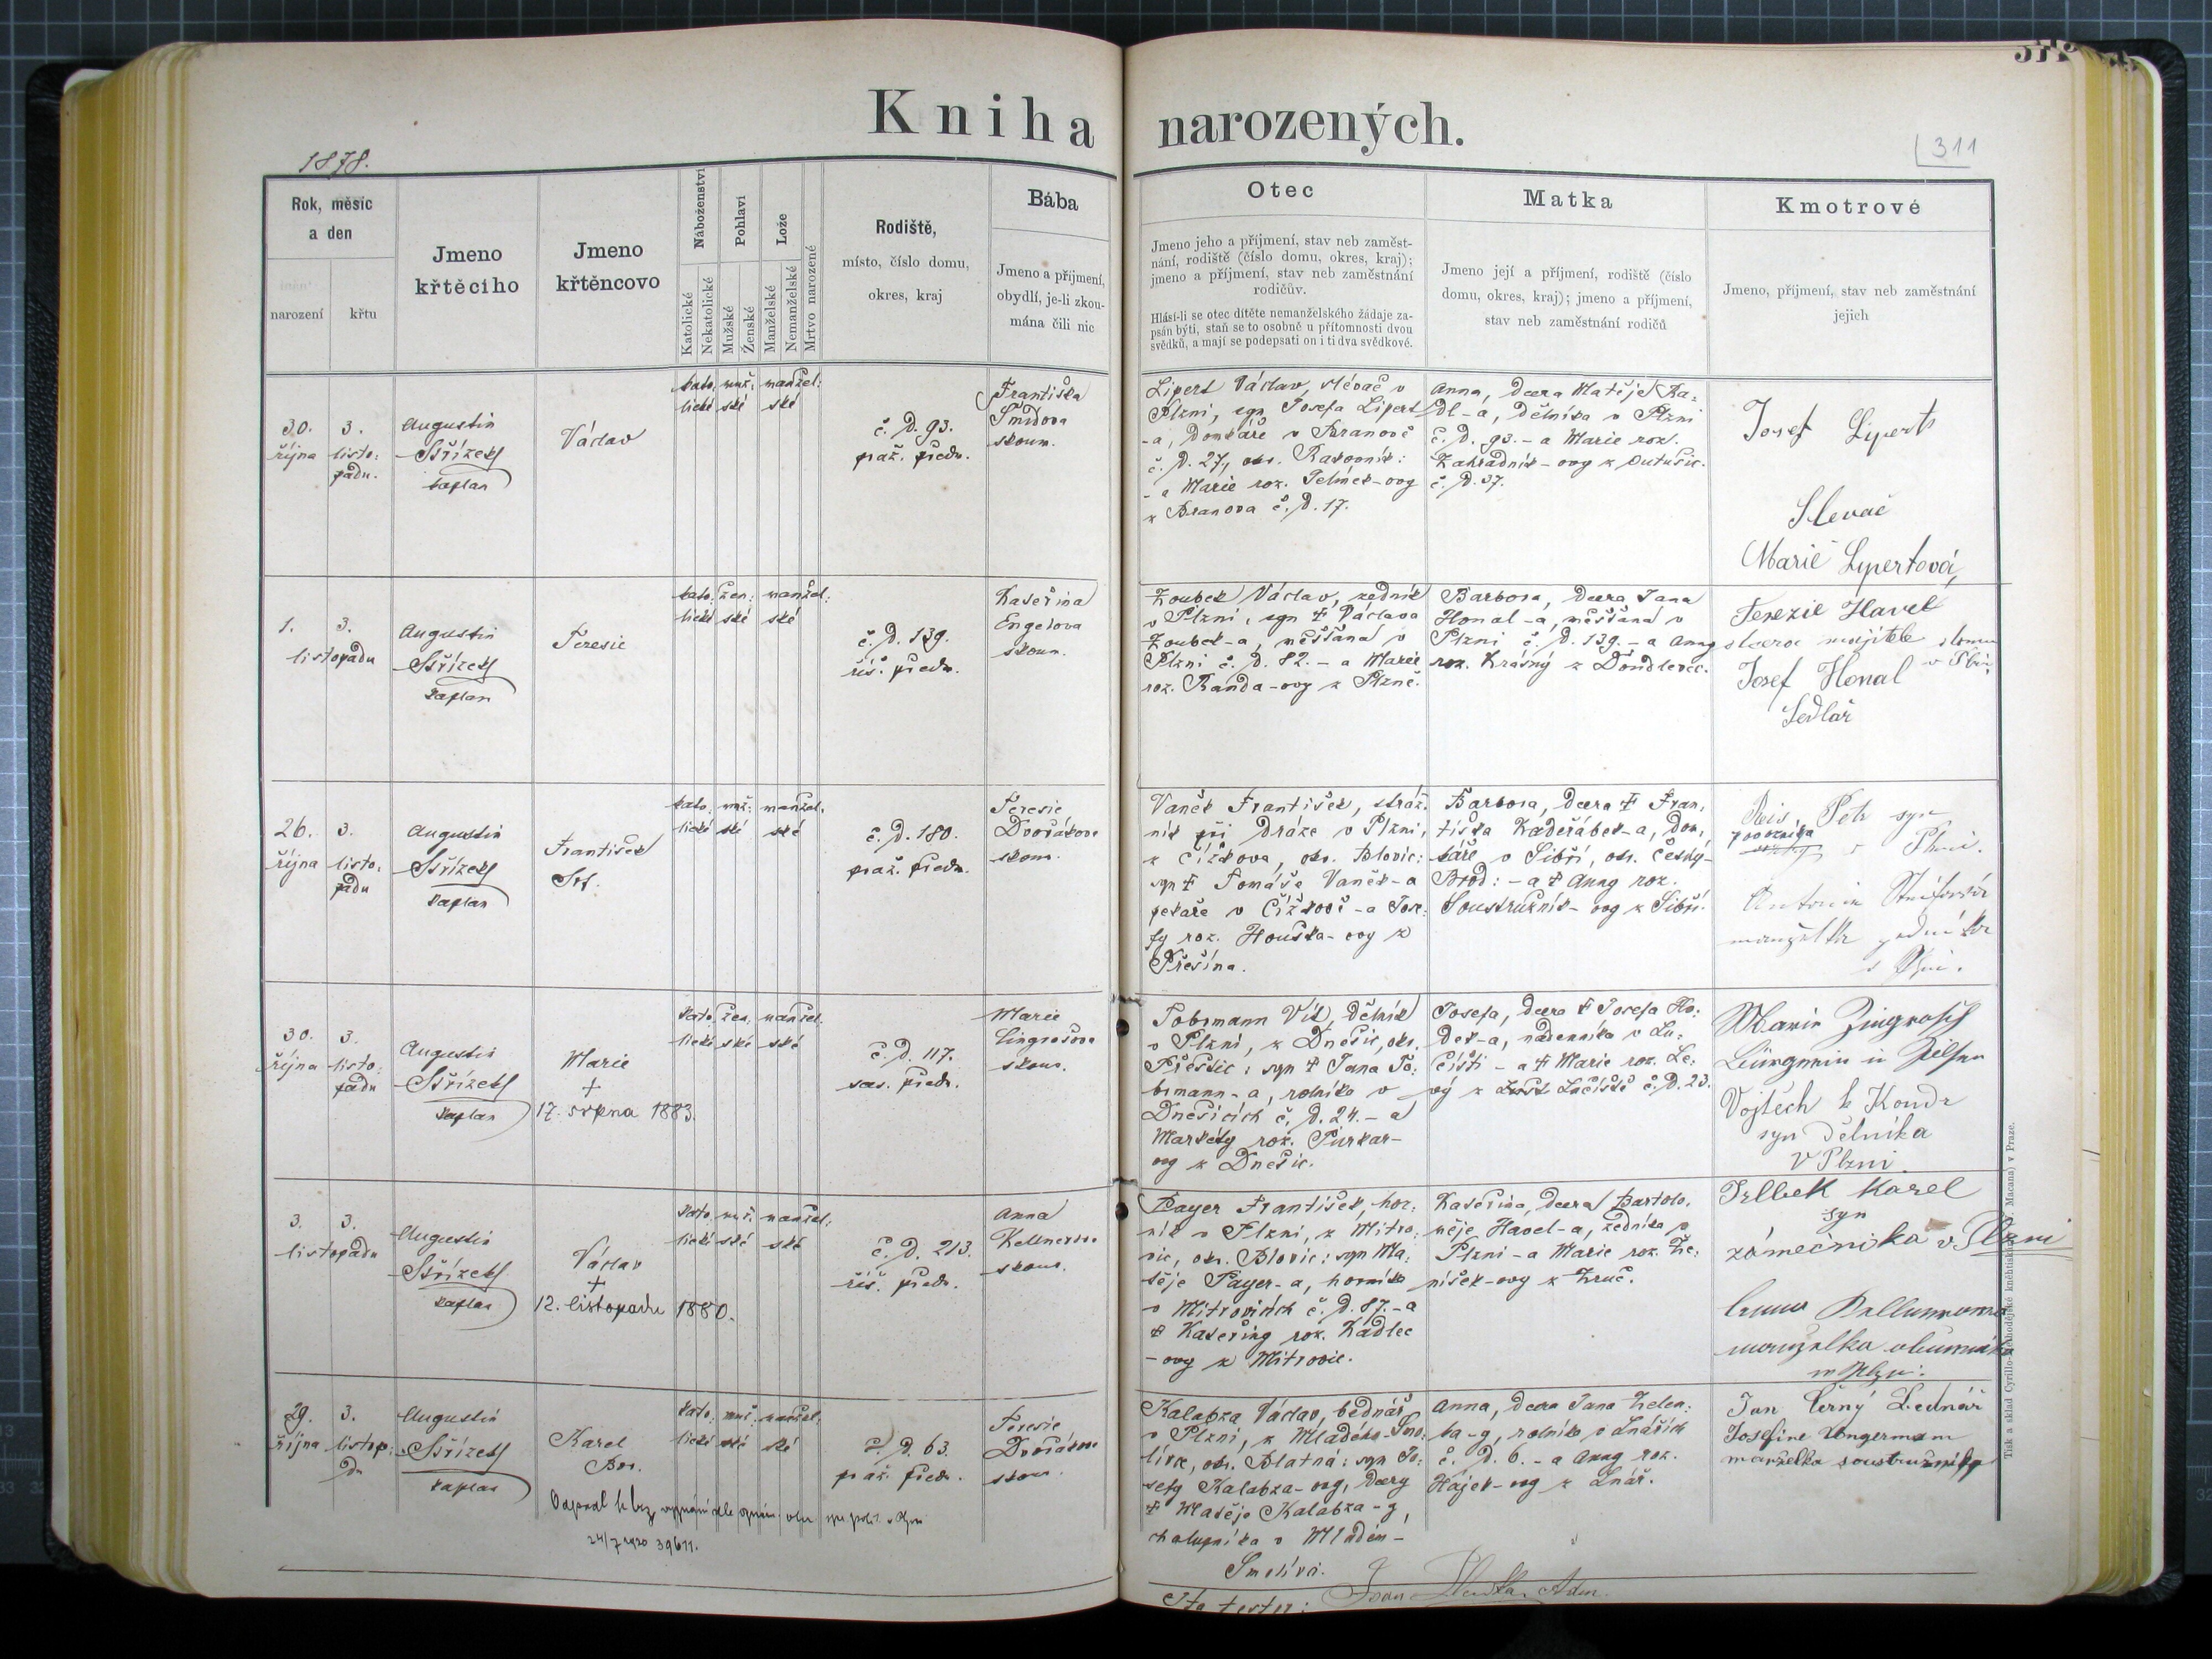 Kniha narozených.
1878.
311
Rok, měsíc
a den
narození
křtu
Jmeno
křtěcího
Jmeno
křtěncovo
Náboženství
Katolické
Nekatolické
Pohlaví
Mužské
Ženské
Lože
Manželské
Nemanželské
Mrtvo narozené
Rodiště,
místo, číslo domu,
okres, kraj
Bába
Jmeno a příjmení,
obydlí, je-li zkou-
mána čili nic
Otec
Jmeno jeho a příjmení, stav neb zaměst-
nání, rodiště (číslo domu, okres, kraj);
jmeno a příjmení, stav neb zaměstnání
rodičův.
Hlásí-li se otec dítěte nemanželského žádaje za-
psán býti, staň se to osobně u přítomnosti dvou
svědků, a mají se podepsati on i ti dva svědkové.
Matka
Jmeno její a příjmení, rodiště (číslo
domu, okres, kraj); jmeno a příjmení,
stav neb zaměstnání rodičů
Kmotrové
Jmeno, příjmení, stav neb zaměstnání
jejich
30.
října
3.
listo:
padu.
Augustin
Střízek
kaplan
Václav
kato:
lické
muž:
ské
manžel:
ské
č. D. 93.
praž. předm.
Františka
Šmídova
zkoum.
Lipert Václav, slévač v
Plzni, syn Josefa Lipert
-a, domkáře v Branově
č. D. 27, okr. Rakovník:
-a Marie roz. Jelínek-ovy
z Branova č. D. 17.
Anna, dcera Matěje Ka:
dl-a, dělníka v Plzni
č. D. 93. - a Marie roz.
Zahradník-ovy z Outušic.
č. D. 37.
Josef Lipert
Slevač
Marie Lypertová,
1.
3.
listopadu
Augustin
Střízek
kaplan
Teresie
kato:
lické
žen:
ské
manžel:
ské
č. D. 139.
říš. předm.
Kateřina
Engelova
zkoum.
Zoubek Václav, zedník
v Plzni, syn † Václava
Zoubek-a, měšťana v
Plzni č. D. 82. - a Marie
roz. Randa-ovy z Plzně.
Barbora, dcera Jana
Honal-a, měšťana v
Plzni č. D. 139. - a Anny
roz. Krásný z Doudlevec.
Terezie Havel
dcera majitele domu
v Plzni,
Josef Honal
Sedlář
26.
října
3.
listo:
padu
Augustin
Střízek
kaplan
František
Ser.
kato:
lické
muž:
ské
manžel:
ské
č. D. 180.
praž. předm.
Teresie
Dvořákova
zkoum.
Vaněk František, stráž:
ník při dráze v Plzni,
z Čížkova, okr. Blovic:
syn † Tomáše Vaněk-a
pekaře v Čížkově - a Jose:
fy roz. Houska-ovy z
Přešína.
Barbora, dcera † Fran:
tiška Kadeřábek-a, dom:
káře v Sibři, okr. Český-
Brod: - a † Anny roz.
Soustružník-ovy z Sibři.
Reis Petr syn
v Plzni.
manželka
v Plzni.
30.
října
3.
listo:
padu
Augustin
Střízek
kaplan
Marie
†
17. srpna 1883.
kato:
lické
žen:
ské
manžel:
ské
č. D. 117.
sas. předm.
Marie
Cingrošova
zkoum.
Tobrmann Vít, dělník
v Plzni, z Dnešic, okr.
Přeštic: syn † Jana To:
brmann-a, rolníka v
Dnešicích č. D. 24. - a
Markéty roz. Purkar-
ovy z Dnešic.
Josefa, dcera † Josefa Ho:
dek-a, nádenníka v Lu:
čišti - a † Marie roz. Le:
vý z Lučiště č. D. 23.
Marie Zingrosch
Bürgerin in Pilsen
Vojtěch Koudr
syn dělníka
v Plzni.
3.
3.
listopadu
Augustin
Střízek
kaplan
Václav
†
12. listopadu 1880.
kato:
lické
muž:
ské
manžel:
ské
č. D. 213.
říš. předm.
Anna
Kellnerova
zkoum.
Payer František, hor:
ník v Plzni, z Mitro:
vic, okr. Blovic: syn Ma:
těje Payer-a, horníka
v Mitrovicích č. D. 87. - a
† Kateřiny roz. Kadlec
-ovy z Mitrovic.
Kateřina, dcera Bartolo:
měje Havel-a, zedníka v
Plzni - a Marie roz. Že:
níšek-ovy z Zruč.
Irlbek Karel
syn
zámečnika v Plzni
manželka
v Plzni.
29.
října
3.
listop:
du
Augustin
Střízek
kaplan
Karel
Bor.
kato:
lické
muž:
ské
manžel:
ské
č. D. 63.
praž. předm.
Teresie
Dvořákova
zkoum.
24/7 1920 39611.
Kalabza Václav, bednář
v Plzni, z Mladého-Smo:
livce, okr. Blatná: syn Jo:
sefy Kalabza-ovy, dcery
† Matěje Kalabza-y,
chalupníka v Mladém-
Smolivci.
Anna, dcera Jana Zelen:
ka-y, rolníka v Lnářích
č. D. 6. - a Anny roz.
Hájek-ovy z Lnář.
Jan Černý Bednář
Josefine Ungermann
manželka soustružníka
Tisk a sklad Cyrillo-Methodějské knihtiskárny (V. Macana) v Praze.